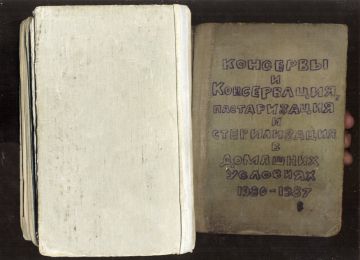 КОНСЕРВЫ
И
КОНСЕРВАЦИЯ,
ПАСТАРИЗАЦИЯ
И
СТЕРИЛИЗАЦИЯ
В
ДОМАШНИХ
УСЛОВИЯХ
1986-1987